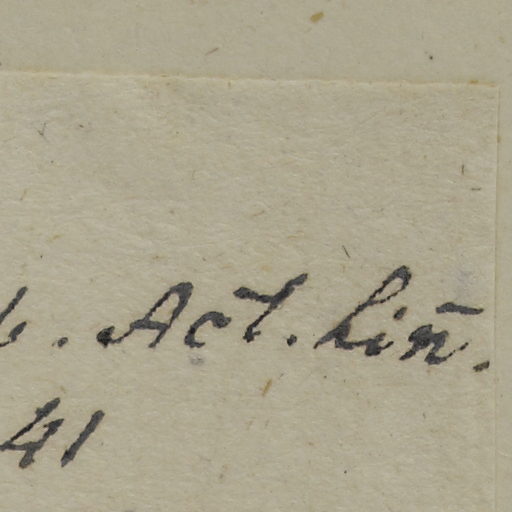 . Act. Lin̄.
41